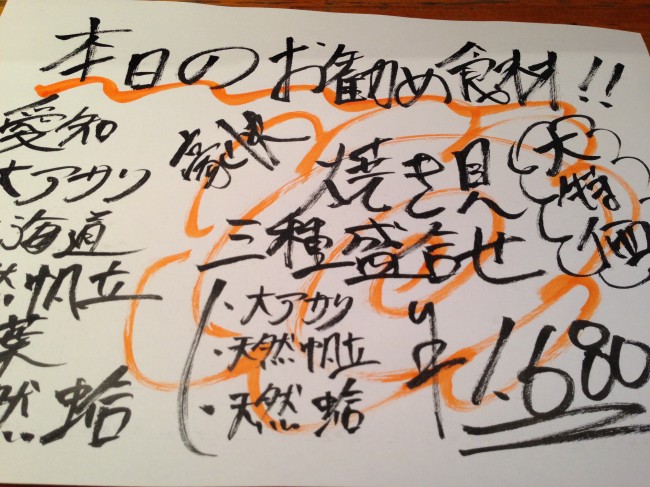 本日のお勧め食材!!
愛知
大アサリ
海道
然帆立
葉
然蛤
焼き貝
三種盛合せ
・大アサリ
・天然帆立
・天然蛤
¥1.680
大特価